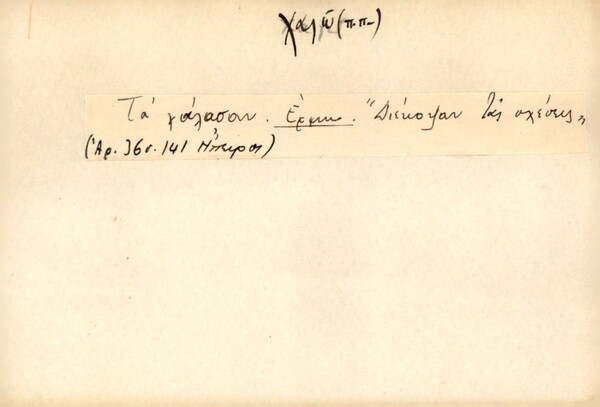 χαλῶ (π.π.)
Τά χάλασαν. Ἑρμ. "Διέκοψαν τάς σχέσεις"
(Ἀρ. 36 σ. 141 Ἤπειρος)